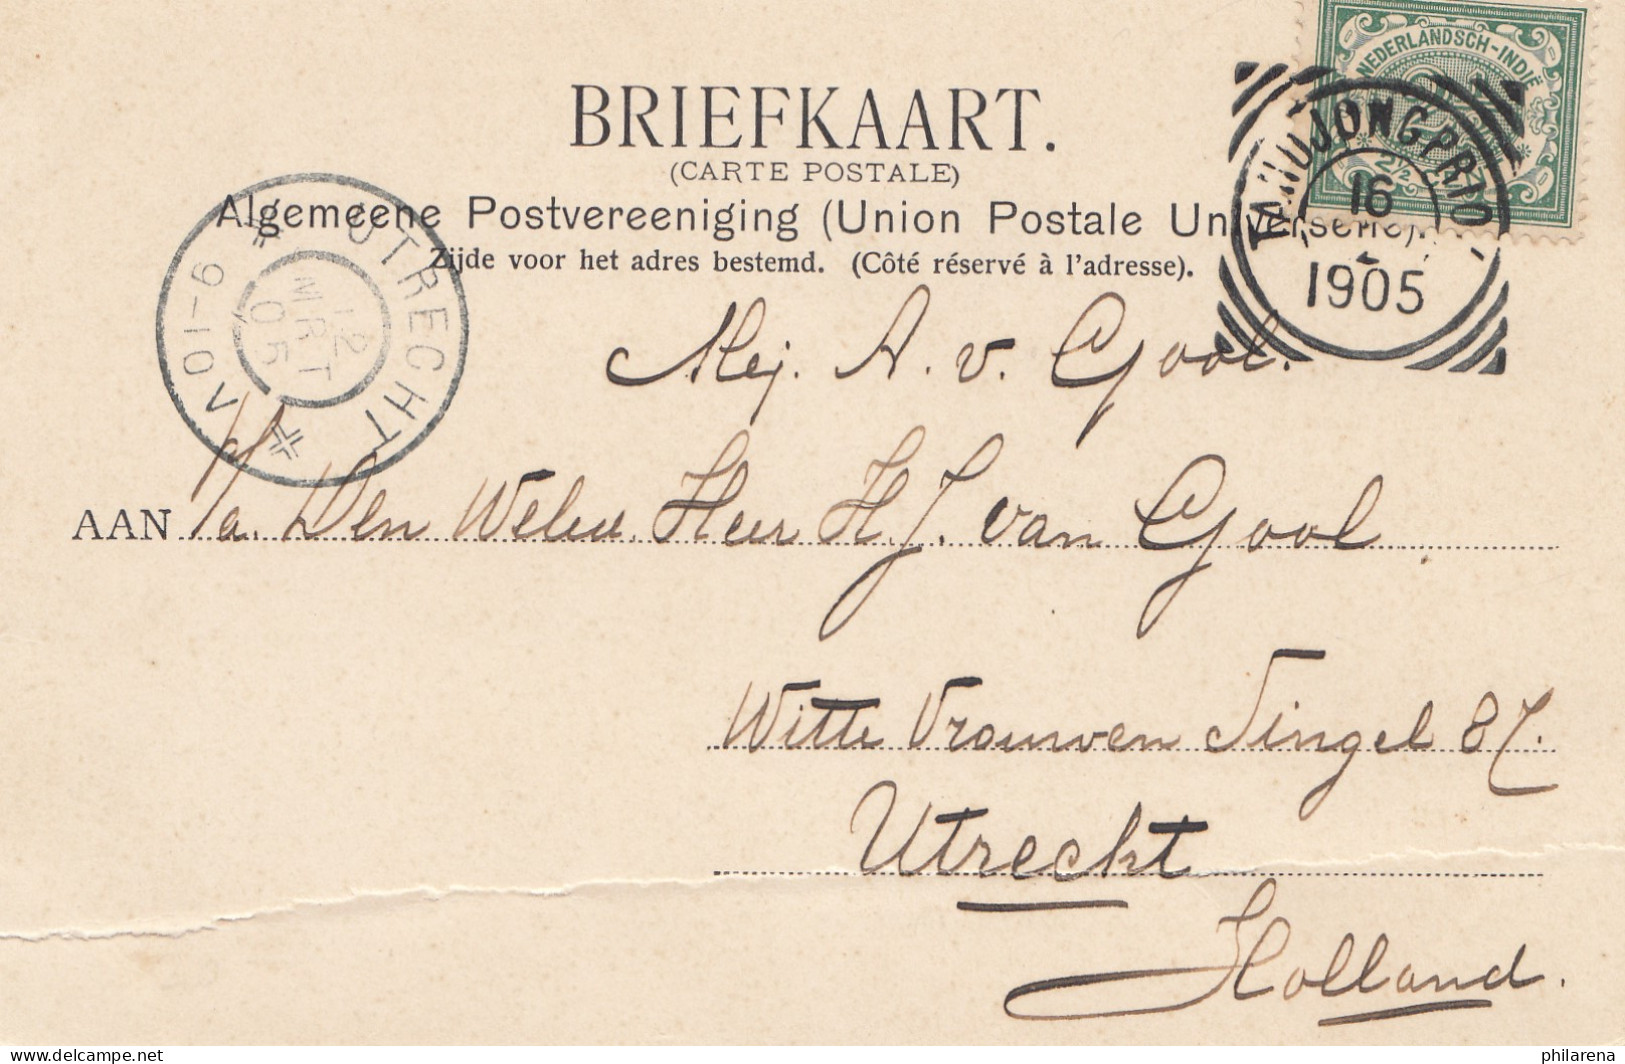 NEDERLANDSCH-INDIË
2½
BRIEFKAART.
(CARTE POSTALE)
Algemeene Postvereeniging (Union Postale Universelle).
Zijde voor het adres bestemd. (Côté réservé à l'adresse).
TANDJONGPRIOK
16
2
1905
UTRECHT
12
MRT
05
9-10V
Mej. A. v. Gool.
AAN p/a. Den Weled. Heer H. J. van Gool
Witte Vrouwen Singel 87.
Utrecht
Holland.
philarena